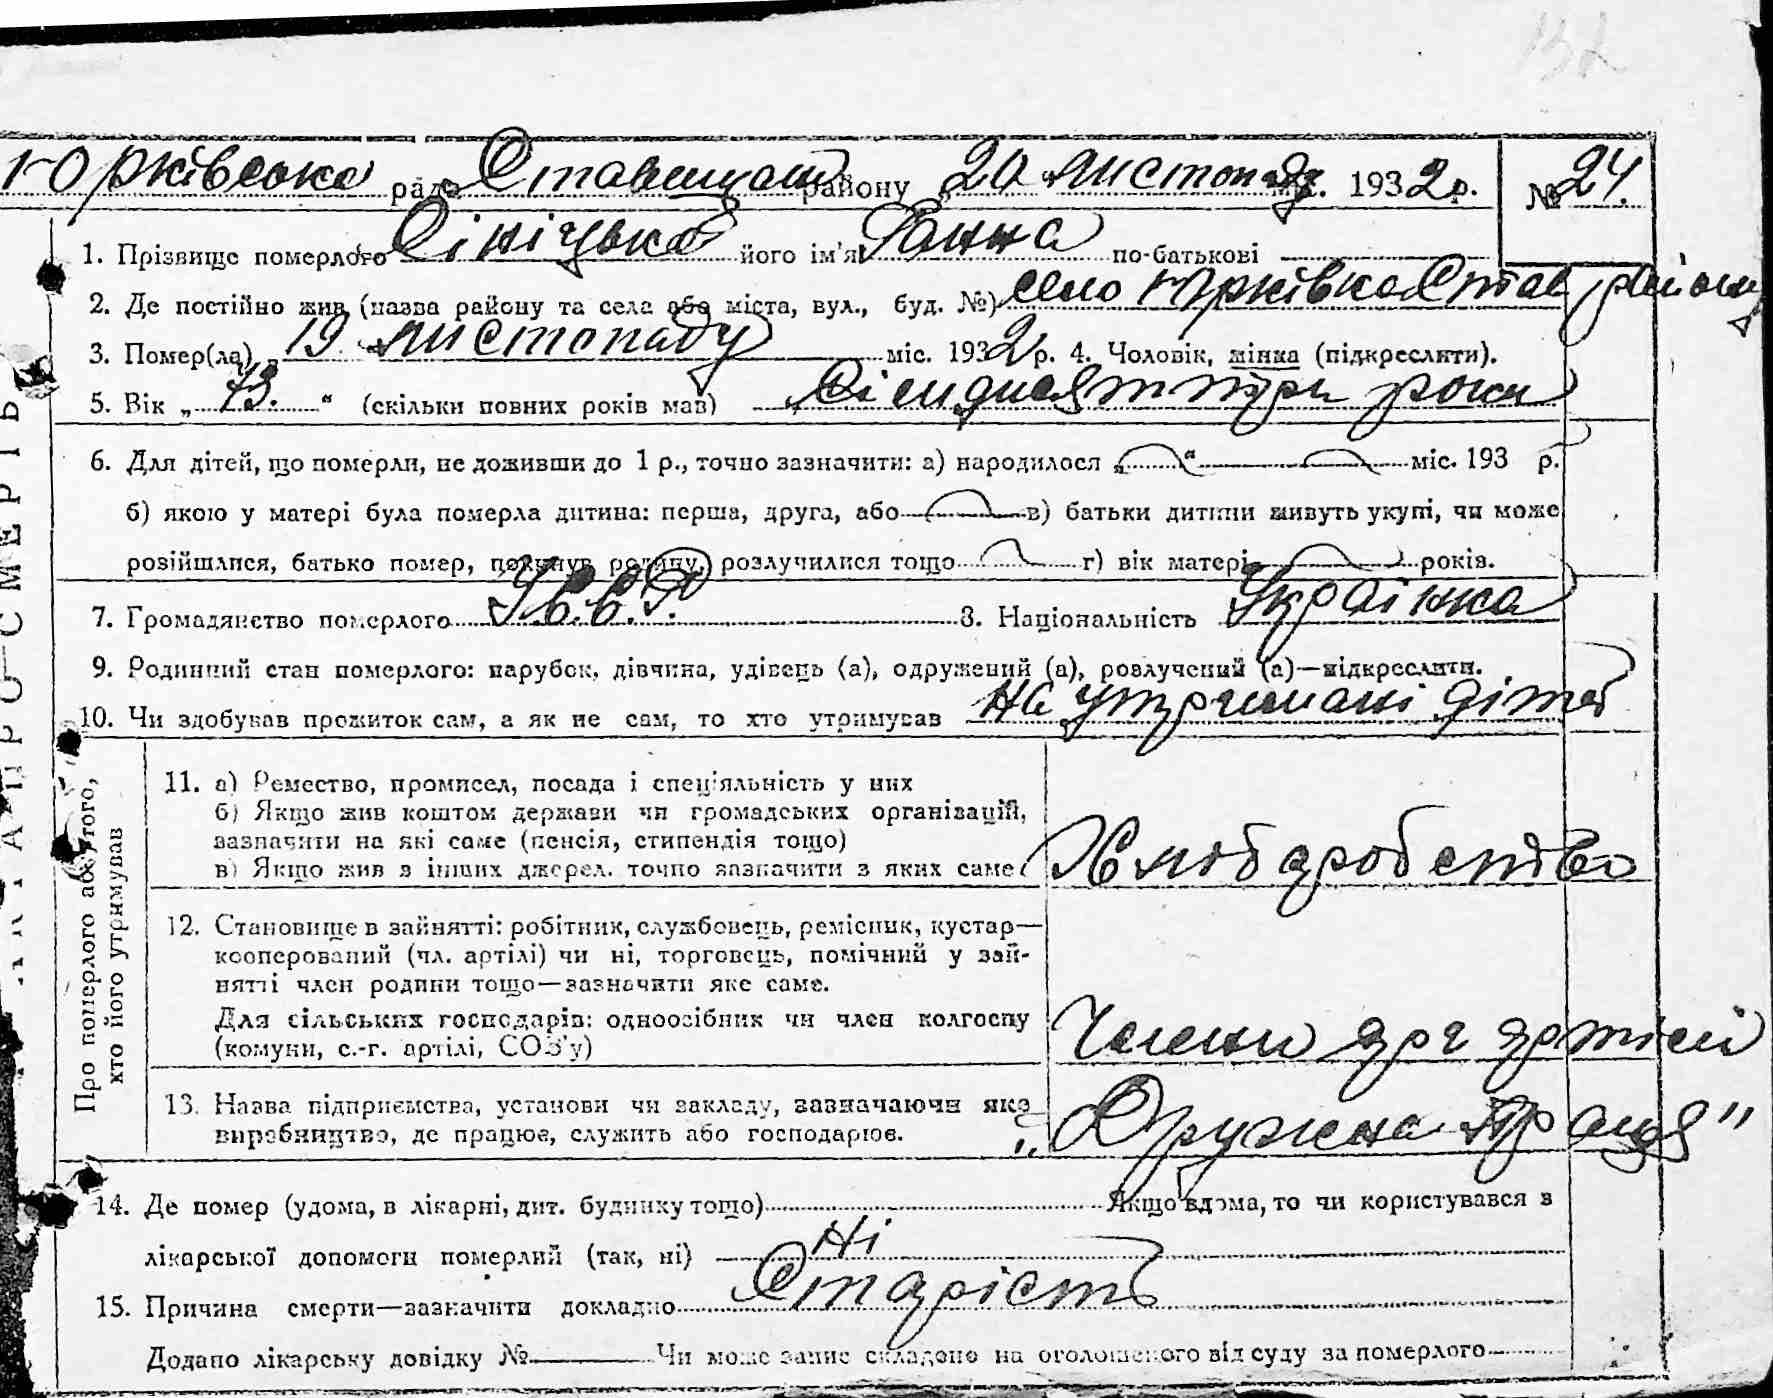 132
Юрківська рада Ставищан району „20 листопада міс. 1932 р. № 24.
1. Прізвище померлого Сініцька його ім'я Ганна по-батькові
2. Де постійно жив (назва району та села або міста, вул., буд. №) село Юрківка Став району
3. Помер(ла) „19 листопаду міс. 1932 р. 4. Чоловік, жінка (підкреслити).
5. Вік „73.“ (скільки повних років мав) Сімдесят три роки
6. Для дітей, що померли, не доживши до 1 р., точно зазначити: а) народилося „ “ міс. 193 р.
б) якою у матері була померла дитина: перша, друга, або в) батьки дитини живуть укупі, чи може
розійшлися, батько помер, покинув родину, розлучилися тощо г) вік матері років.
7. Громадянство померлого У.С.С.Р. 8. Національність Українка
9. Родинний стан померлого: парубок, дівчина, удівець (а), одружений (а), розлучений (а)—підкреслити.
10. Чи здобував прожиток сам, а як не сам, то хто утримував на утримані дітей
АКТ ПРО СМЕРТЬ
Про померлого або того,
хто його утримував
11. а) Ремество, промисел, посада і спеціяльність у них
б) Якщо жив коштом держави чи громадських організацій,
зазначити на які саме (пенсія, стипендія тощо)
в) Якщо жив з інших джерел. точно зазначити з яких саме
Хліборобство
12. Становище в зайнятті: робітник, службовець, ремісник, кустар—
кооперований (чл. артілі) чи ні, торговець, помічний у зай-
нятті член родини тощо—зазначити яке саме.
Для сільських господарів: одноосібник чи член колгоспу
(комуни, с.-г. артілі, СОЗ'у)
Члени артілі
13. Назва підприємства, установи чи закладу, зазначаючи яке
виробництво, де працює, служить або господарює.
„Дружна праця"
14. Де помер (удома, в лікарні, дит. будинку тощо) Якщо вдома, то чи користувався з
лікарської допомоги померлий (так, ні) Ні
15. Причина смерти—зазначити докладно Старість
Додано лікарську довідку № Чи може запис складено на оголошеного від суду за померлого